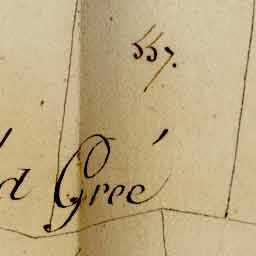 557.
d Greé